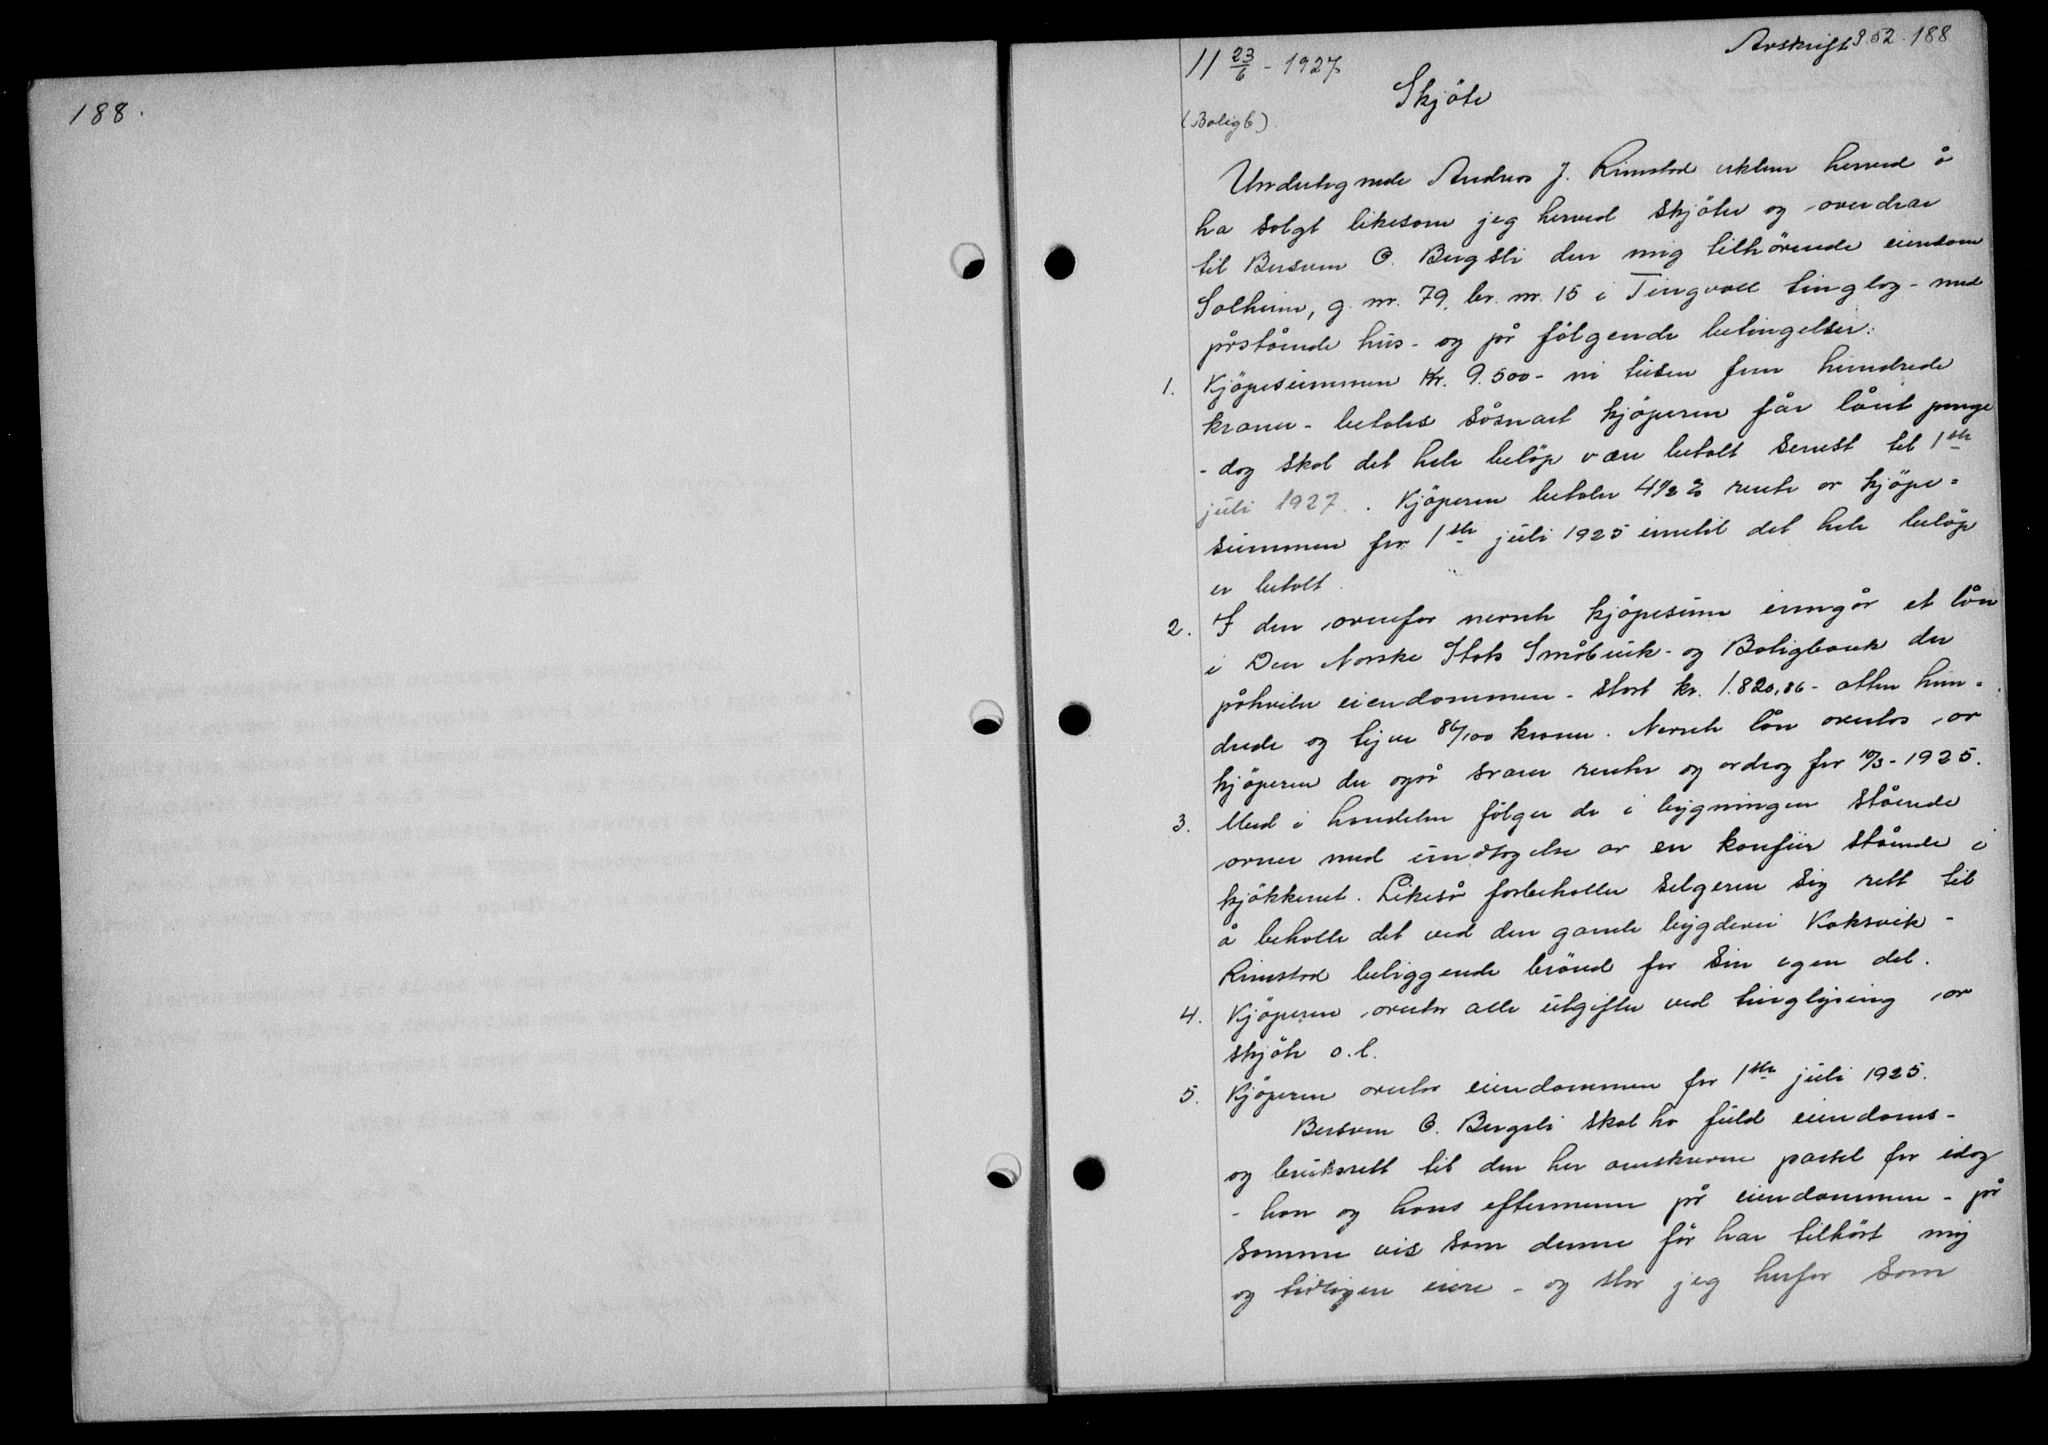 188.
Avskrift 352. 188
11 23/6 - 1927
Skjöte
(Boligb)
Undertegnede Andreas J. Rimstad erklær herved å
ha solgt likesom jeg herved skjöter og overdrar
til Bersven O. Bergsli den mig tilhörende eiendom
Solheim, g. nr. 79, br. nr. 15 i Tingvoll tinglog - med
påstående hus - og på fölgende betingelser:
1. Kjöpesummen kr. 9.500 - ni tusen fem hundrede
kroner - betales såsnart kjöperen får lånt penge
- dog skal det hele belöp være betalt senest til 1ste
juli 1927. Kjöperen betaler 4 1/2 % rente av kjöpe=
summen fra 1ste juli 1925 inntil det hele belöp
er betalt.
2. I den ovenfor nevnte kjöpesum inngår et lån
i Den Norske Stats Småbruk- og Boligbank der
påhviler eiendommen - stort kr. 1.820,86 - atten hun=
drede og tjue 86/100 kroner. Nevnte lån overtas av
kjöperen der også svarer renter og avdrag fra 10/3 - 1925.
3. Med i handelen fölger de i bygningen stående
ovner med undtagelse av en komfur stående i
kjökkenet. Likeså forbeholder selgeren sig rett til
å beholde det ved den gamle bygdevei Koksvik -
Rimstad beliggende brönd for sin egen del.
4. Kjöperen overtar alle utgifter ved tinglysing av
skjöte o.l.
5. Kjöperen overtar eiendommen fra 1ste juli 1925.
Bersven O. Bergsli skal ha fuld eiendoms-
og bruksrett til den her omskrevne parsel fra idag
- han og hans eftermenn på eiendommen - på
samme vis som denne før har tilhört mig
og tidligere eiere - og står jeg herfor som